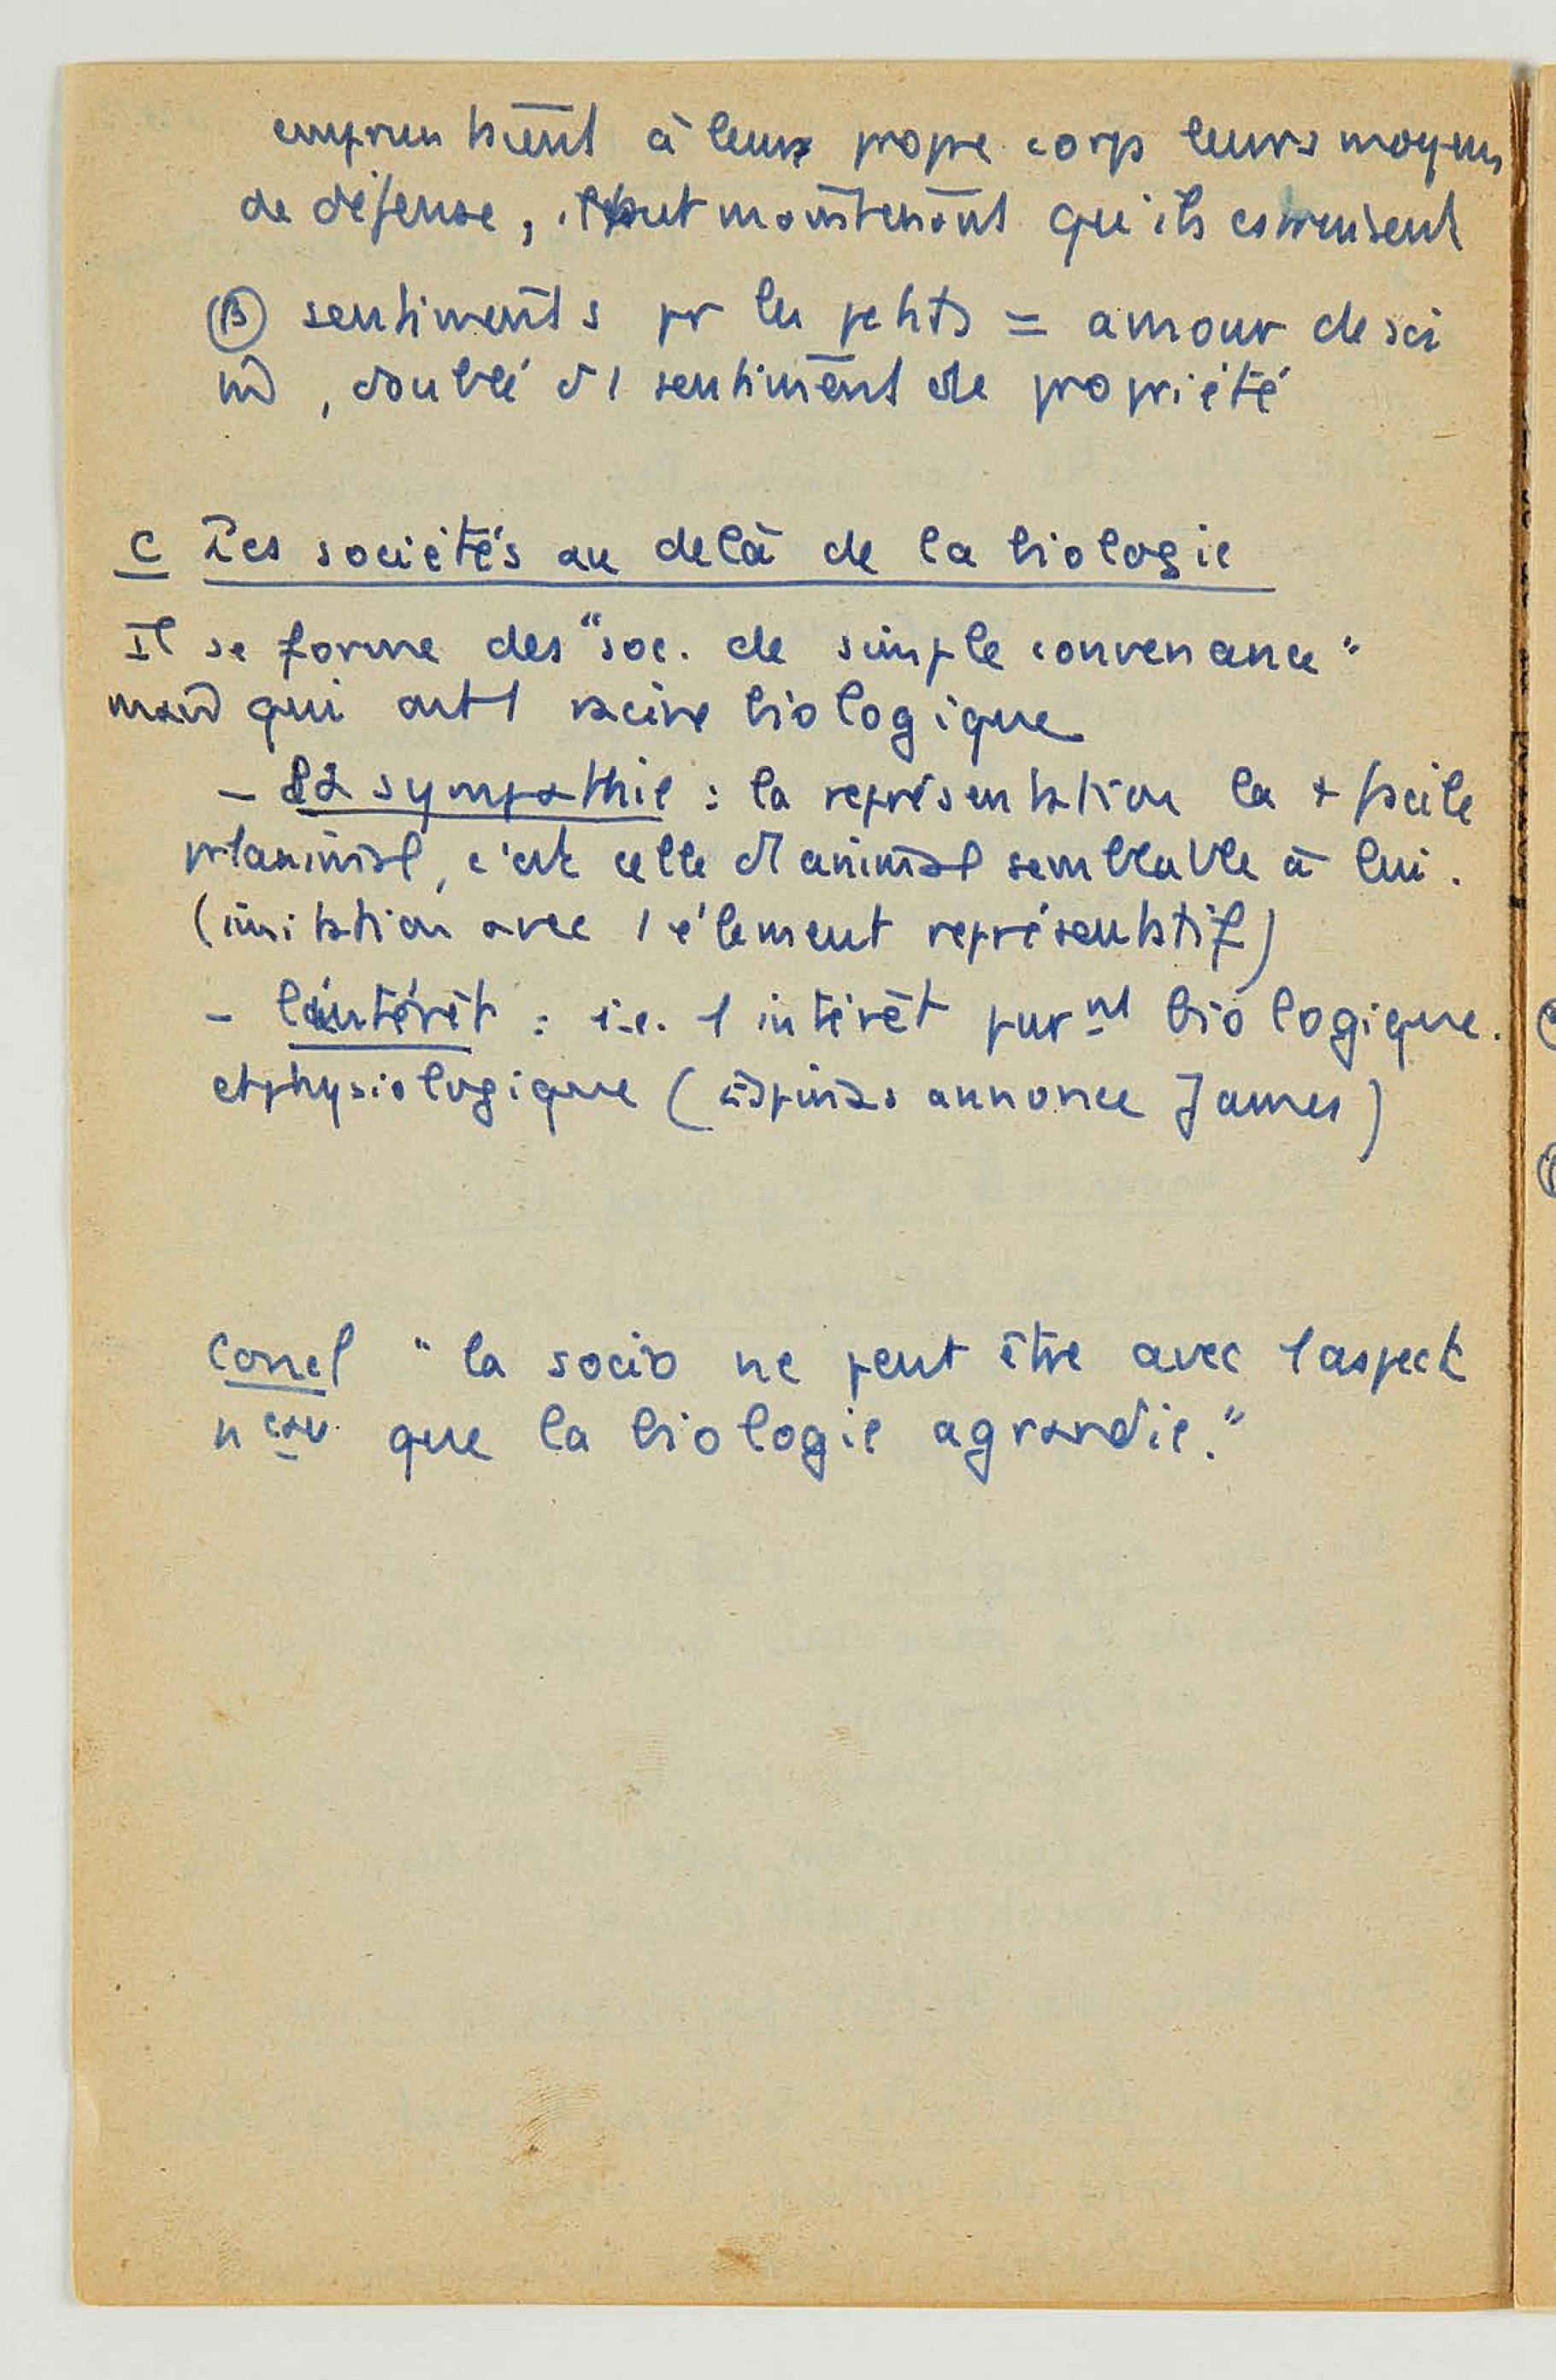 empruntaient à leur propre corps leurs moyens
de défense, il faut maintenant qu'ils construisent
(B) sentiments pr les petits = amour de soi
m̂, doublé d'1 sentiment de propriété
C Les sociétés au delà de la biologie
Il se forme des "soc. de simple convenance"
mais qui ont 1 racine biologique
- La sympathie : la représentation la + facile
pr l'animal, c'est celle d'1 animal semblable à lui.
(imitation avec 1 élement représentatif)
- L'intérêt : i.e. 1 intérêt purnt biologique.
et physiologique (Espinas annonce James)
Concl " la socio ne peut être avec 1 aspect
nveau que la biologie agrandie."